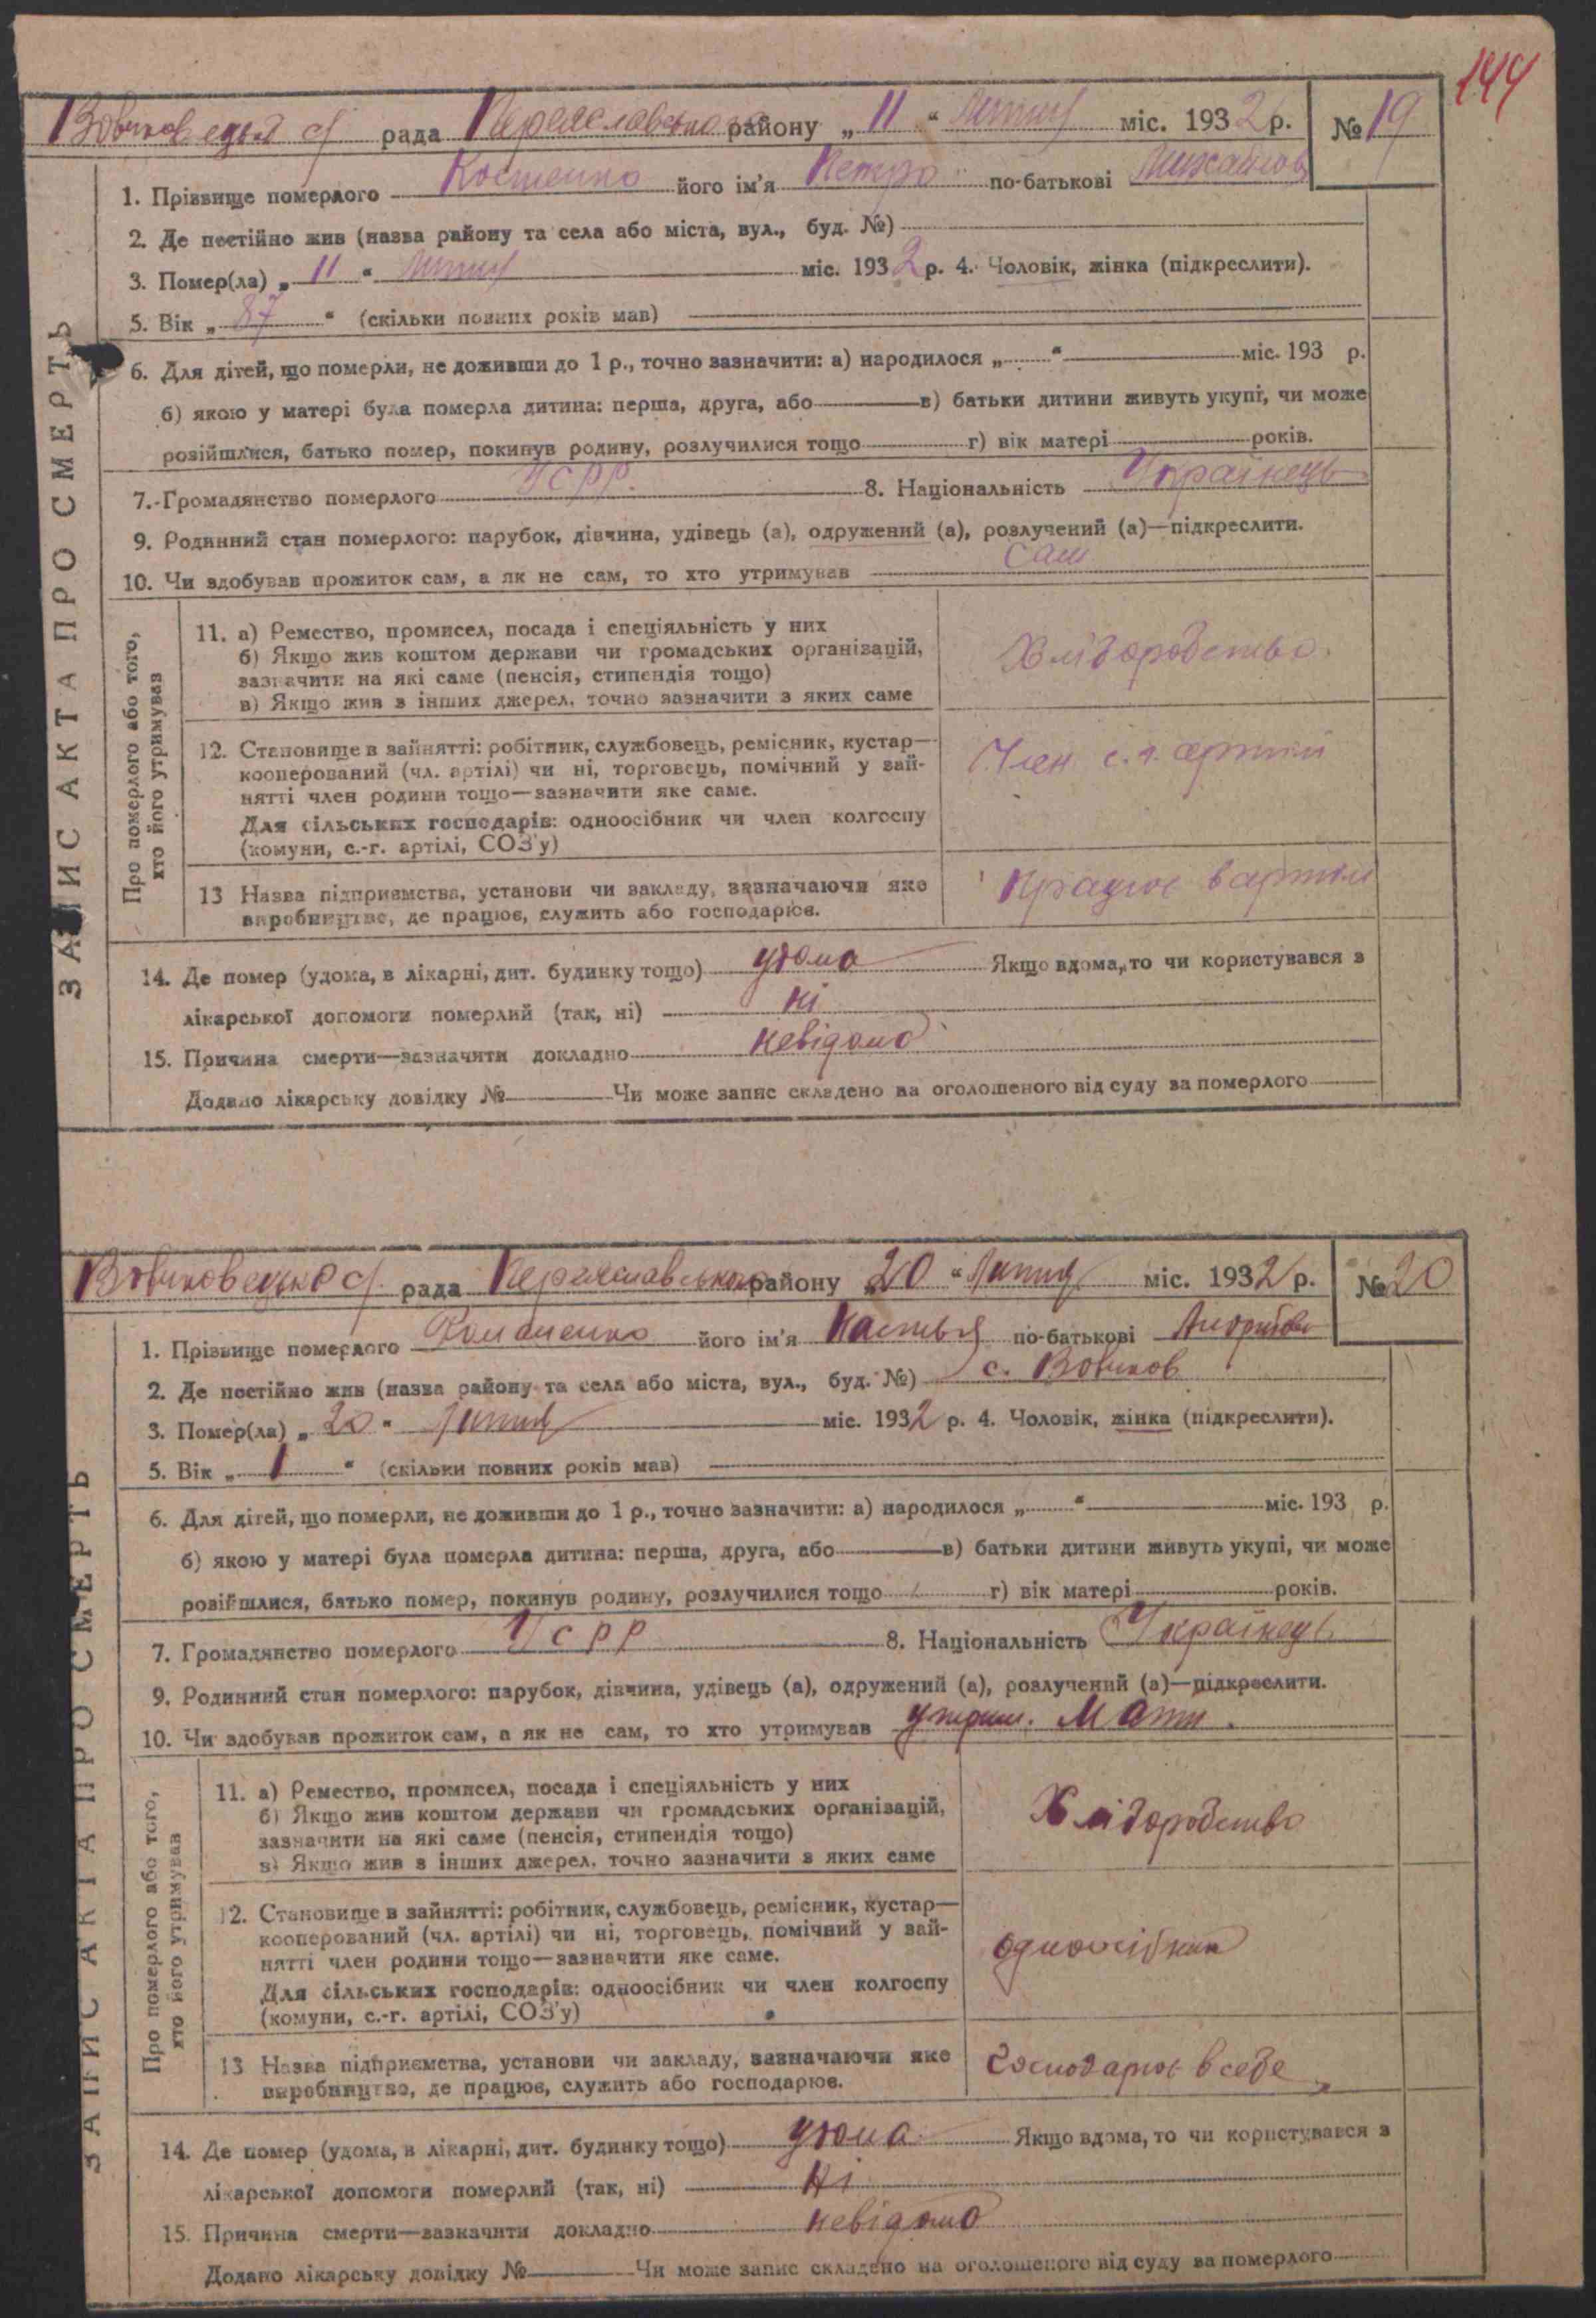 144
Вовчковецька с/ рада Переяславського району „11“ Липня міс. 1932 р. № 19
1. Прізвище померлого Костенко його ім'я Петро по-батькові Михайлов
2. Де постійно жив (назва району та села або міста, вул., буд. №)
3. Помер(ла) „11“ Липня міс. 1932 р. 4. Чоловік, жінка (підкреслити).
5. Вік „87“ (скільки повних років мав)
6. Для дітей, що померли, не доживши до 1 р., точно зазначити: а) народилося „ “ міс. 193 р.
б) якою у матері була померла дитина: перша, друга, або в) батьки дитини живуть укупі, чи може
розійшлися, батько помер, покинув родину, розлучилися тощо г) вік матері років.
7. Громадянство померлого УСРР. 8. Національність Українець
9. Родинний стан померлого: парубок, дівчина, удівець (а), одружений (а), розлучений (а)—підкреслити.
10. Чи здобував прожиток сам, а як не сам, то хто утримував сам
ЗАПИС АКТА ПРО СМЕРТЬ
Про померлого або того,
хто його утримував
11. а) Ремество, промисел, посада і спеціяльність у них
б) Якщо жив коштом держави чи громадських організацій,
зазначити на які саме (пенсія, стипендія тощо)
в) Якщо жив з інших джерел, точно зазначити з яких саме
Хліборобство.
12. Становище в зайнятті: робітник, службовець, ремісник, кустар—
кооперований (чл. артілі) чи ні, торговець, помічний у зай-
нятті член родини тощо—зазначити яке саме.
Для сільських господарів: одноосібник чи член колгоспу
(комуни, с.-г. артілі, СОЗ'у)
Член с.г. артілі
13 Назва підприємства, установи чи закладу, зазначаючи яке
виробництво, де працює, служить або господарює.
Працює в артілі
14. Де помер (удома, в лікарні, дит. будинку тощо) удома Якщо вдома, то чи користувався з
лікарської допомоги померлий (так, ні) ні
15. Причина смерти—зазначити докладно невідомо
Додано лікарську довідку № Чи може запис складено на оголошеного від суду за померлого
Вовчковецька с/ рада Переяславського району „20“ Липня міс. 1932 р. № 20
1. Прізвище померлого його ім'я Настья по-батькові
2. Де постійно жив (назва району та села або міста, вул., буд. №) с. Вовчков
3. Помер(ла) „20“ Липня міс. 1932 р. 4. Чоловік, жінка (підкреслити).
5. Вік „1“ (скільки повних років мав)
6. Для дітей, що померли, не доживши до 1 р., точно зазначити: а) народилося „ “ міс. 193 р.
б) якою у матері була померла дитина: перша, друга, або в) батьки дитини живуть укупі, чи може
розійшлися, батько помер, покинув родину, розлучилися тощо г) вік матері років.
7. Громадянство померлого УСРР 8. Національність Українець
9. Родинний стан померлого: парубок, дівчина, удівець (а), одружений (а), розлучений (а)—підкреслити.
10. Чи здобував прожиток сам, а як не сам, то хто утримував утрим. Мати.
ЗАПИС АКТА ПРО СМЕРТЬ
Про померлого або того,
хто його утримував
11. а) Ремество, промисел, посада і спеціяльність у них
б) Якщо жив коштом держави чи громадських організацій,
зазначити на які саме (пенсія, стипендія тощо)
в) Якщо жив з інших джерел, точно зазначити з яких саме
Хліборобство
12. Становище в зайнятті: робітник, службовець, ремісник, кустар—
кооперований (чл. артілі) чи ні, торговець, помічний у зай-
нятті член родини тощо—зазначити яке саме.
Для сільських господарів: одноосібник чи член колгоспу
(комуни, с.-г. артілі, СОЗ'у)
одноосібник
13 Назва підприємства, установи чи закладу, зазначаючи яке
виробництво, де працює, служить або господарює.
Господарює в себе
14. Де помер (удома, в лікарні, дит. будинку тощо) удома Якщо вдома, то чи користувався з
лікарської допомоги померлий (так, ні) Ні
15. Причина смерти—зазначити докладно невідомо
Додано лікарську довідку № Чи може запис складено на оголошеного від суду за померлого